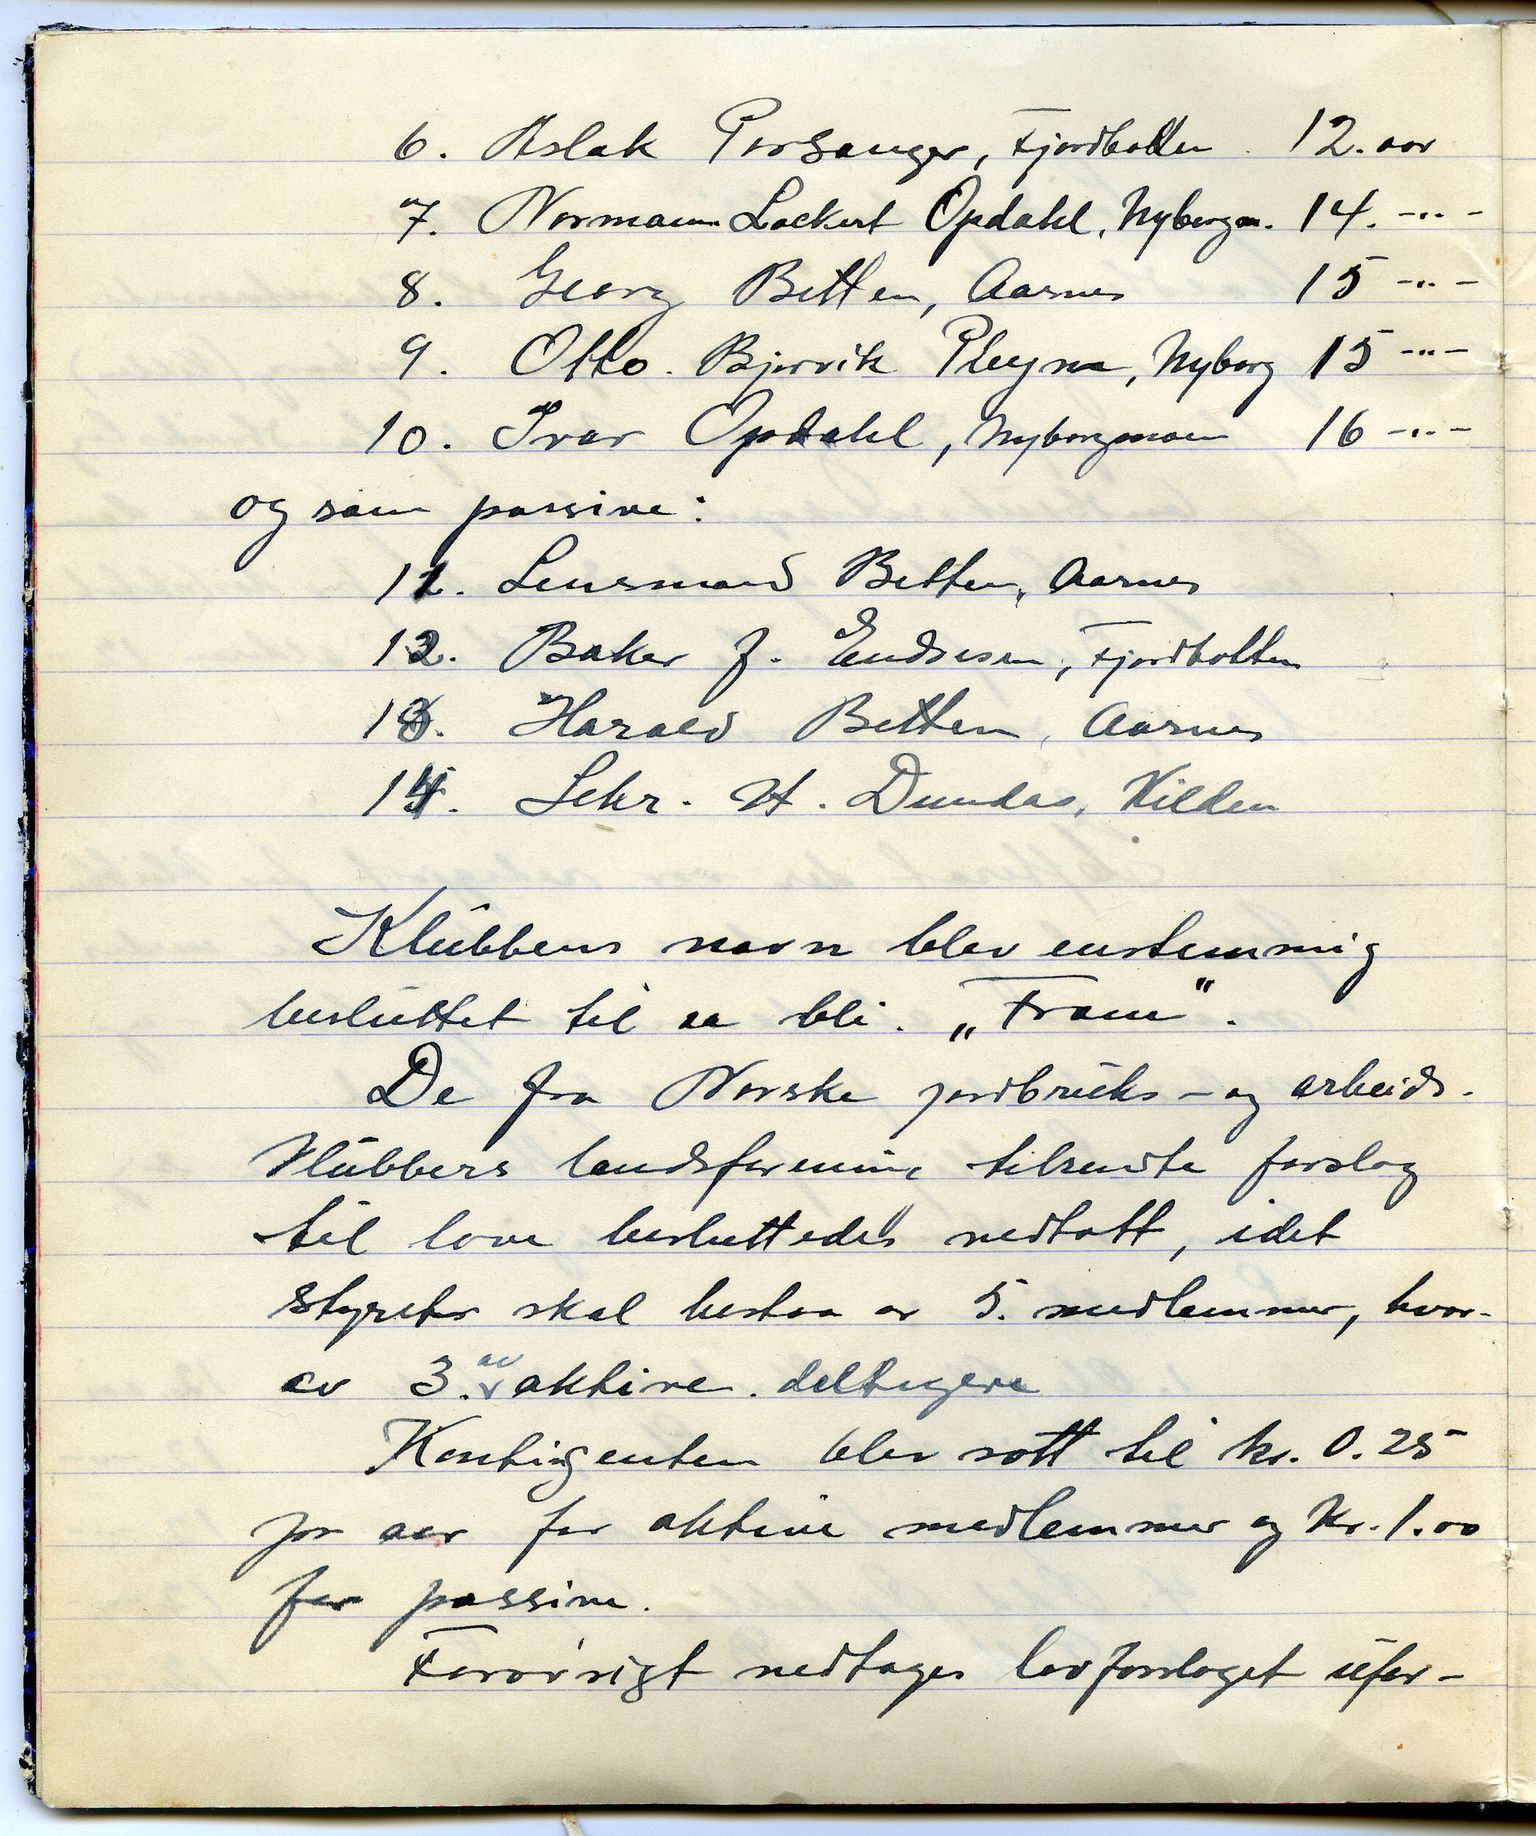 6. Aslak Porsanger, Fjordbotten 12. aar
7. Normann Lockert Opdahl, Nyborgm. 14. -"-
8. Georg Betten, Aarnes 15 -"-
9. Otto Bjervik Pleym, Nyborg 15 -"-
10. Ivar Opdahl, Nyborgmoen 16 -"-
og som passive:
11. Lensmand Betten, Aarnes
12. Baker J. Endresen, Fjordbotten
13. Harald Betten, Aarnes
14. Sekr. H. Dundas, Kilden
Klübbens navn blev enstemmig
beslüttet til aa bli. „Fram".
De fra Norske jordbrüks- og arbeids-
klübbers landsforening tilsendte forslag
til love besluttedes vedtatt, idet
styret skal bestaa av 5. medlemmer, hvor-
av 3. av aktive deltagere
Kontigenten blev satt til kr. 0.25
pr aar for aktive medlemmer og kr. 1.00
for passive.
Forøvrigt vedtages lovforslaget üfor-